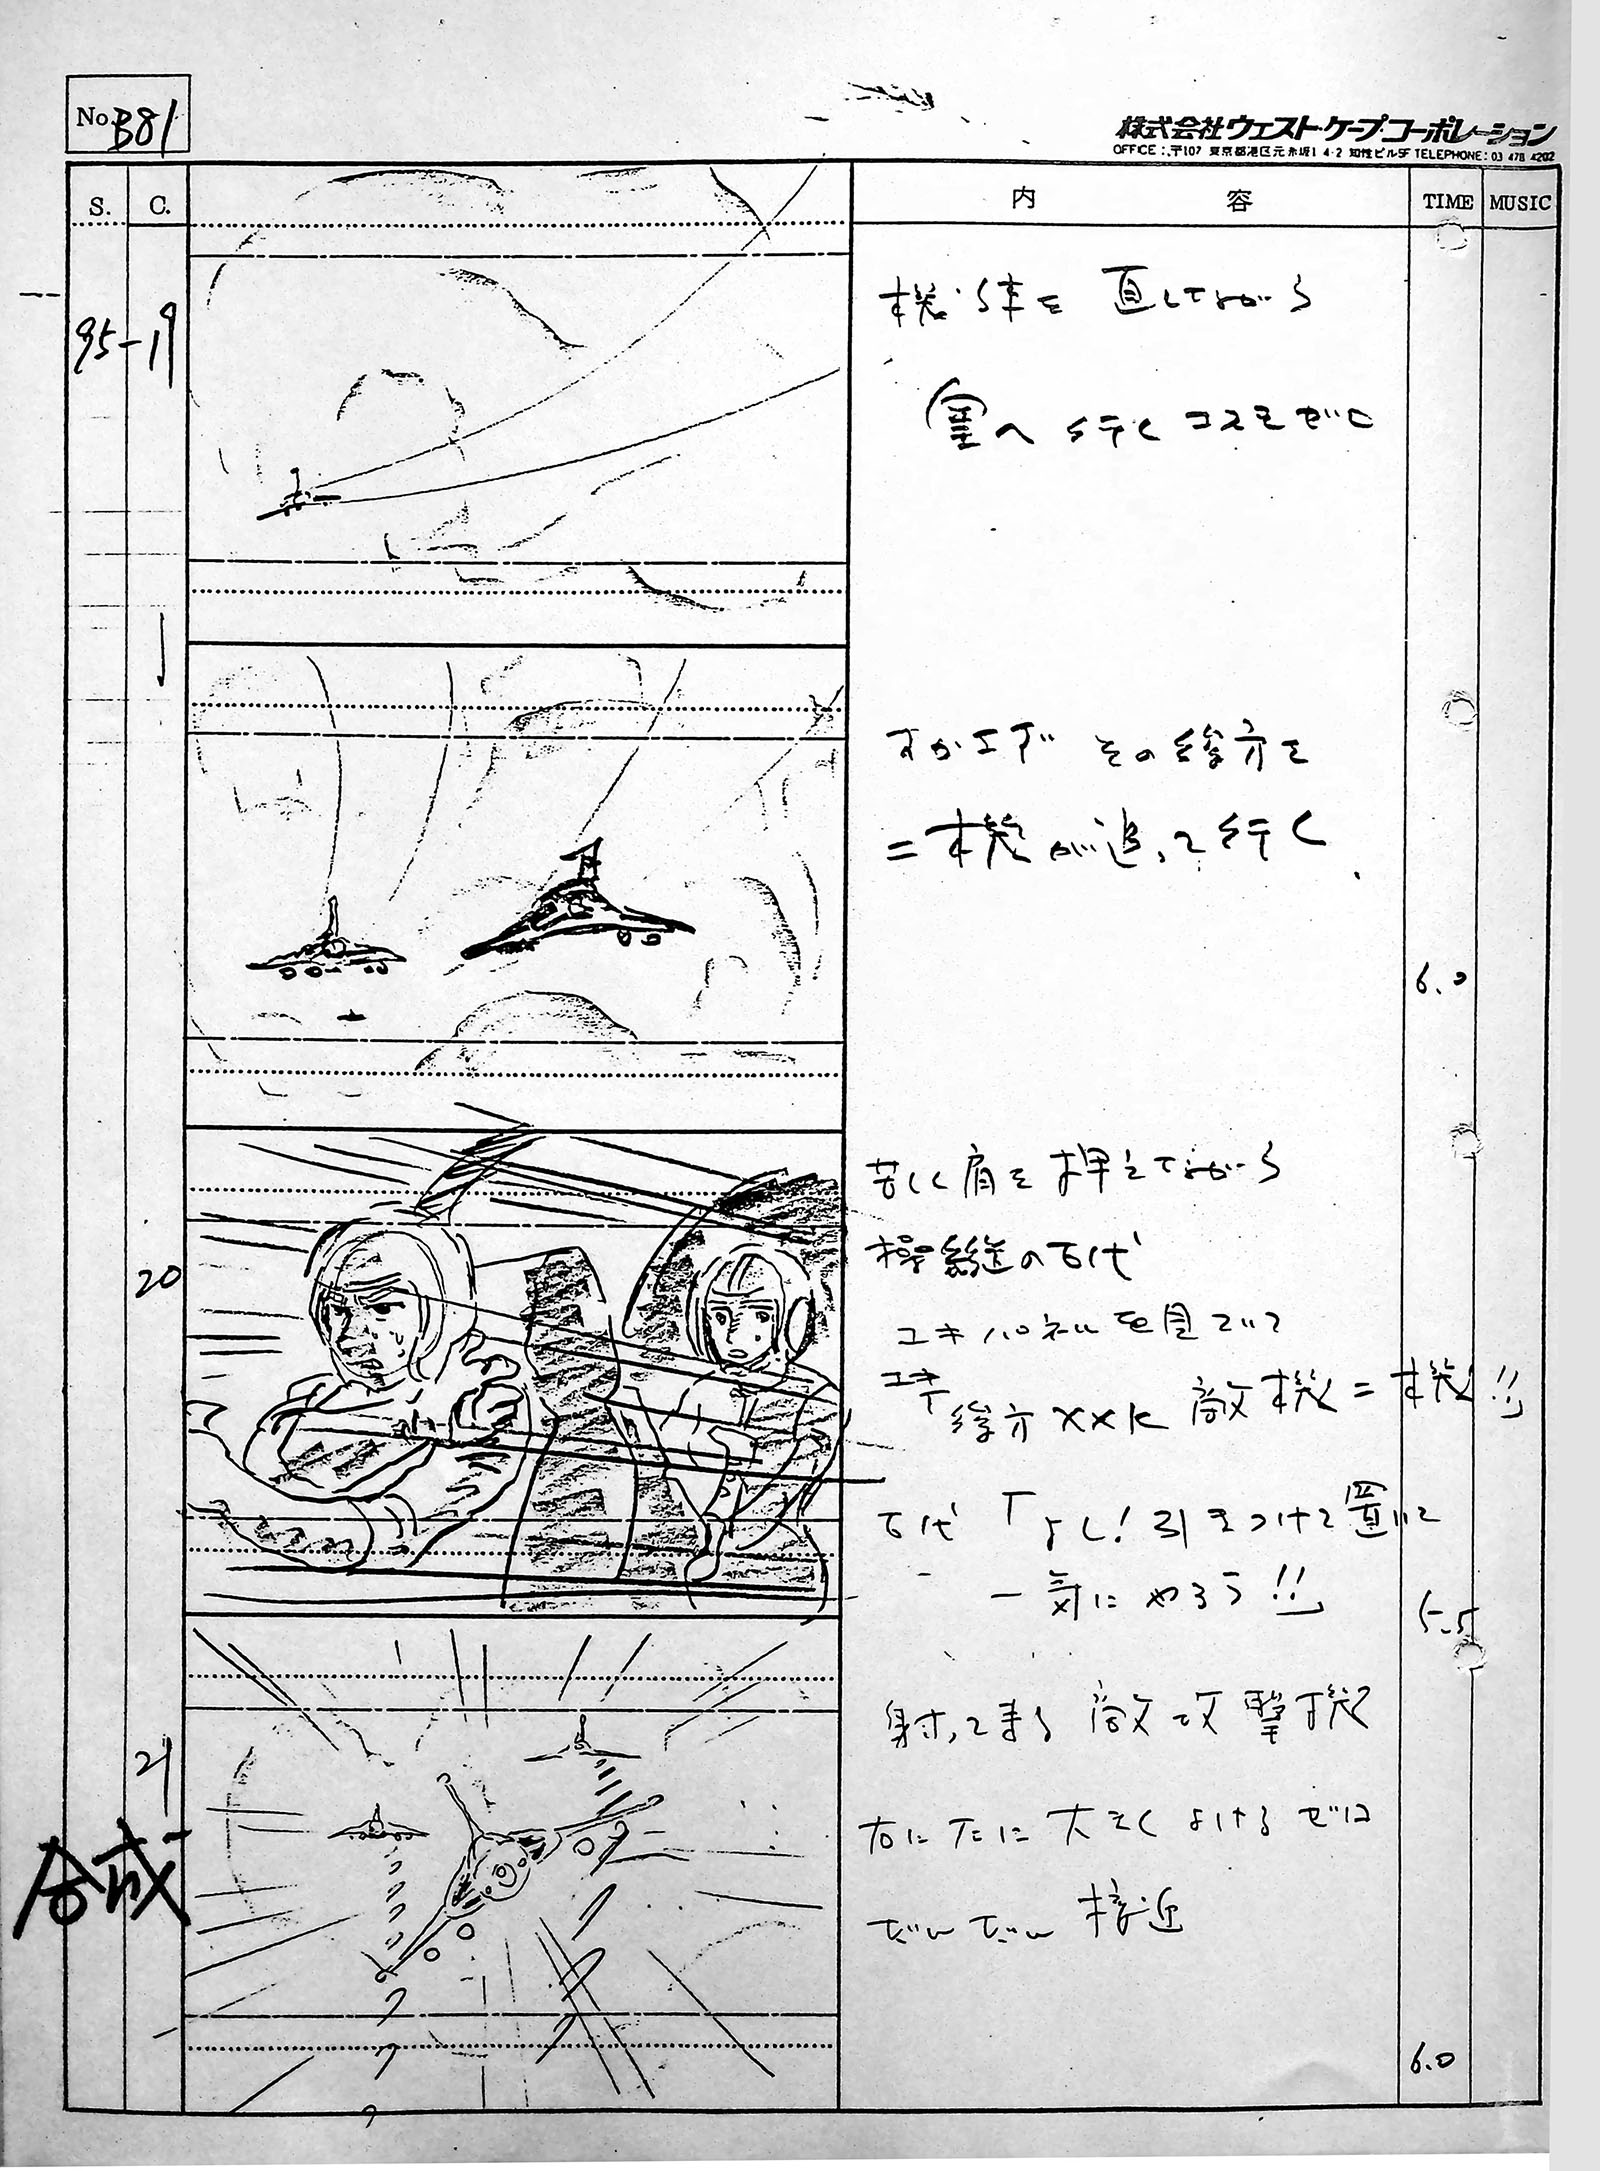 No. B81
株式会社ウエスト・ケープ・コーポレーション
OFFICE:〒107 東京都港区元赤坂1 4-2 知性ビル5F TELEPHONE:03 478 4202
S. C. 内容 TIME MUSIC
95-19
機体を直してながら
へ行くコスモゼロ
すかエず その後方を
二機が追って行く
6.0
20
苦しく肩を押えてながら
操縦の古代
ユキ パネルを見ていて
ユキ「後方××K 敵機二機!!」
古代「よし!引きつけて置いて
一気にやろう!!」
5.5
21
合成
射って来る敵攻撃機
右に左に大きくよけるゼロ
だんだん接近
6.0